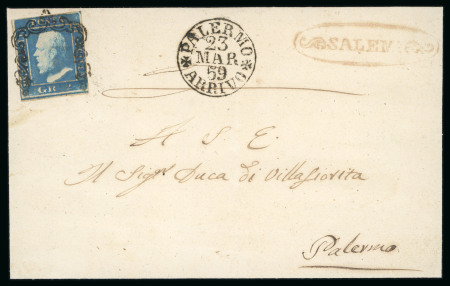 GR. 2
PALERMO
23
MAR
59
ARRIVO
SALEMI
A S. E.
Il Sigr. Duca di Villafiorita
Palermo